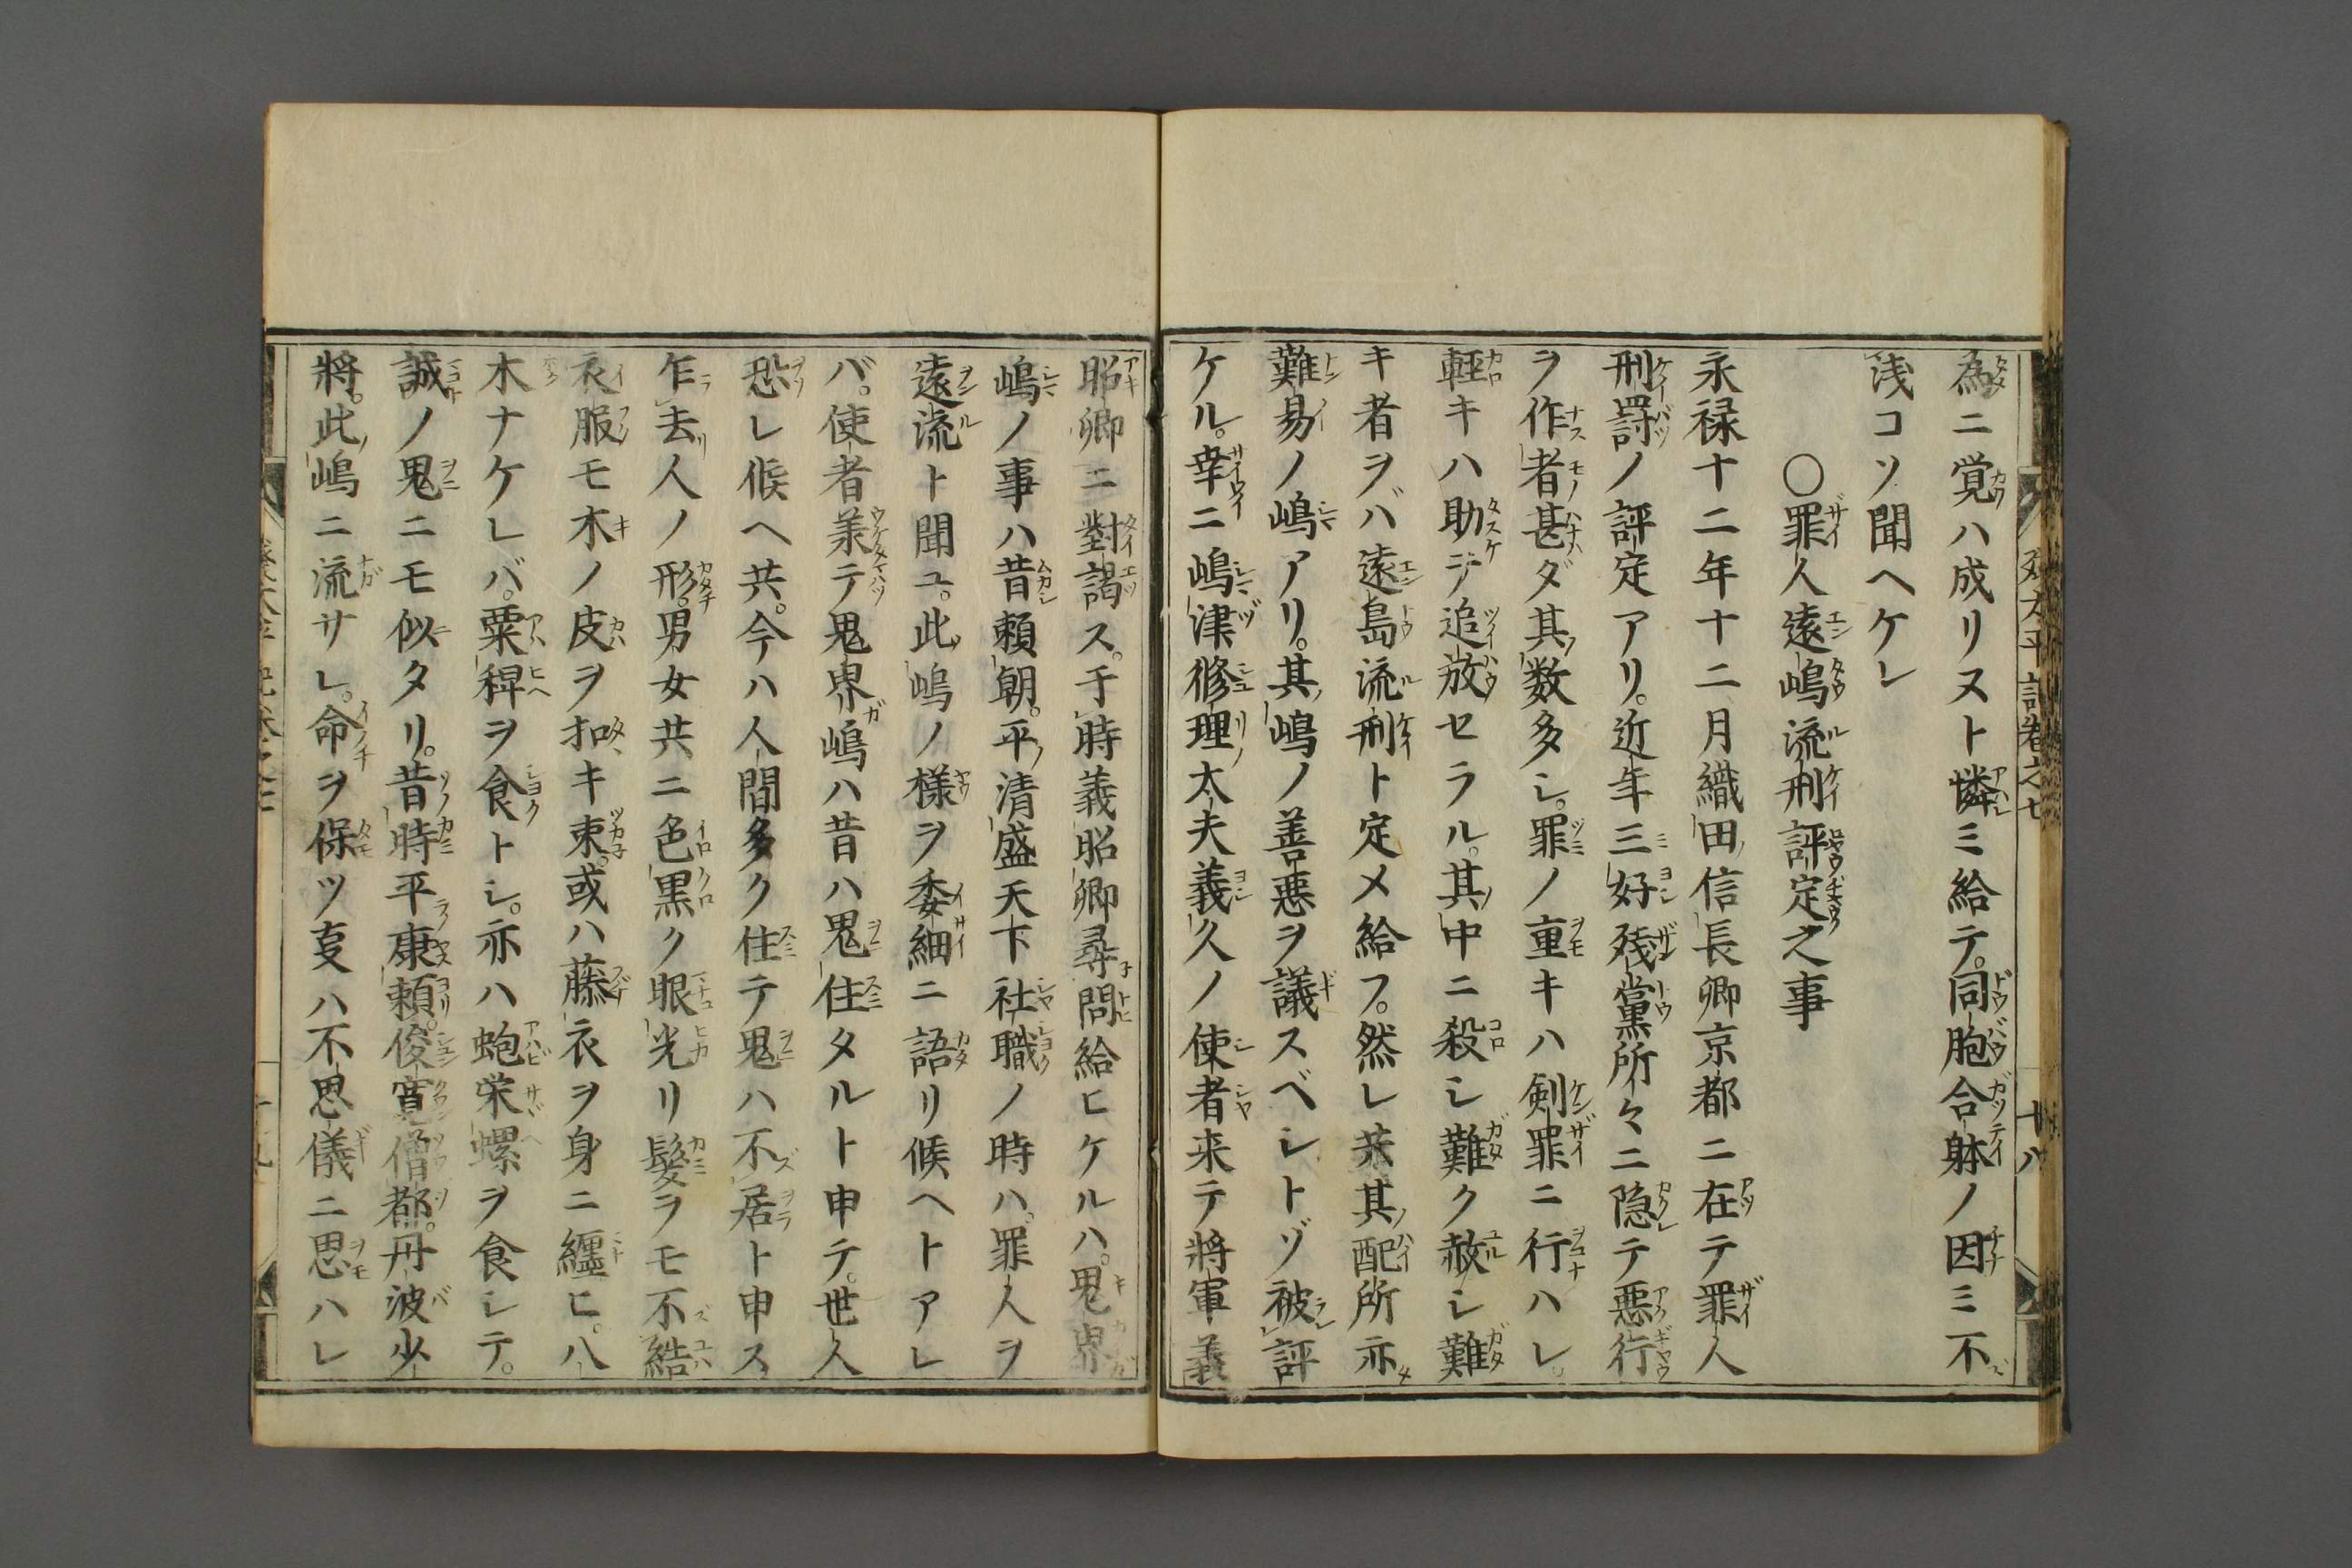 為ニ覚ハ成リヌト憐ミ給テ。同胞合躰ノ因ミ不
浅コソ聞ヘケレ
〇罪人遠嶋流刑評定之事
永禄十二年十二月織田信長卿京都ニ在テ罪人
刑罸ノ評定アリ。近年三好残黨所々ニ隠テ悪行
ヲ作者甚ダ其数多シ。罪ノ重キハ剣罪ニ行ハレ。
軽キハ助テ追放セラル。其中ニ殺シ難ク赦シ難
キ者ヲバ遠島流刑ト定メ給フ。然レ共其配所亦
難易ノ嶋アリ。其嶋ノ善悪ヲ議スベシトゾ被評
ケル。幸ニ嶋津修理太夫義久ノ使者来テ將軍義
昭卿ニ對謁ス。于時義昭卿尋問給ヒケルハ。鬼界
嶋ノ事ハ昔頼朝。平清盛天下社職ノ時ハ。罪人ヲ
遠流ト聞ユ。此嶋ノ様ヲ委細ニ語リ候ヘトアレ
バ。使者羕テ鬼界嶋ハ昔ハ鬼住タルト申テ。世人
恐レ候ヘ共。今ハ人間多ク住テ鬼ハ不居ト申ス
乍去人ノ形。男女共ニ色黒ク眼光リ髪ヲモ不結
衣服モ木ノ皮ヲ扣キ束。或ハ藤衣ヲ身ニ纒ヒ。八
木ナケレバ。粟稗ヲ食トシ。亦ハ蚫栄螺ヲ食シテ。
誠ノ鬼ニモ似タリ。昔時平康頼。俊寛僧都。丹波少
將。此嶋ニ流サレ。命ヲ保ツ叓ハ不思儀ニ思ハレ